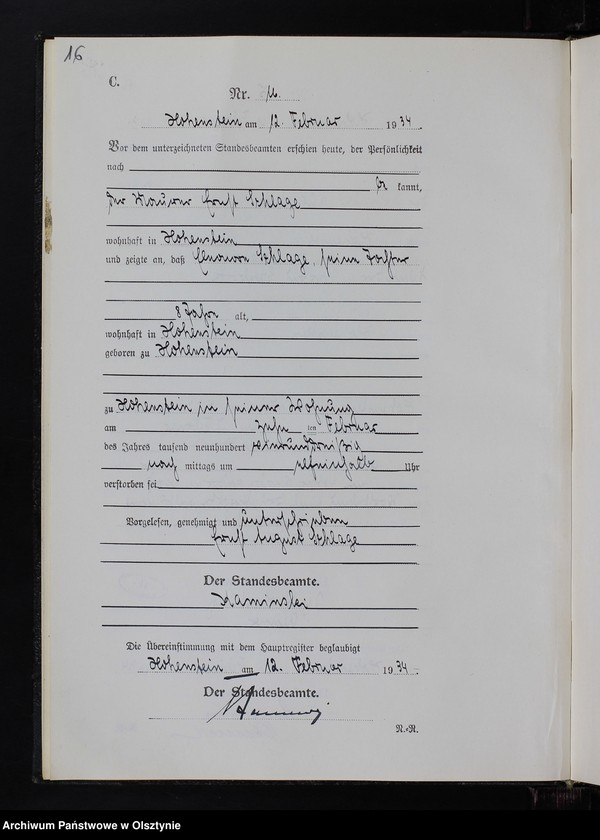 16
C.
Nr. 16.
Hohenstein am 12. Februar 1934.
Vor dem unterzeichneten Standesbeamten erschien heute, der Persönlichkeit
nach
be kannt,
der Maurer Ernst Schlage
wohnhaft in Hohenstein
und zeigte an, daß Eleonore Schlage, seine Tochter
8 Jahre alt,
wohnhaft in Hohenstein
geboren zu Hohenstein
zu Hohenstein in seiner Wohnung
am zehn ten Februar
des Jahres tausend neunhundert vierunddreißig
nach mittags um Uhr
verstorben sei.
Vorgelesen, genehmigt und unterschrieben
Ernst August Schlage
Der Standesbeamte.
Kaminski
Die Übereinstimmung mit dem Hauptregister beglaubigt
Hohenstein am 12. Februar 1934.
Der Standesbeamte.
Kaminski
N.-R.
Archiwum Państwowe w Olsztynie